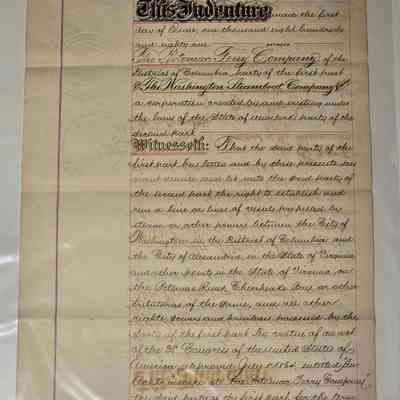 This Indenture made the first
day of June, one thousand eight hundred
and eighty one between
The Potomac Ferry Company of the
District of Columbia, party of the first part
& The Washington Steamboat Company
a corporation created by and existing under
the laws of the State of party of the
second part
Witnesseth: That the said party of the
first part has letten and by these presents
grant demise and let unto the said party of
the second part the right to establish and
run a line or lines of vessels propelled by
steam or other powers between the City of
Washington in the District of Columbia and
the City of Alexandria in the State of Virginia
and other points in the State of Virginia on
the Potomac River, Chesapeake Bay or other
tributaries of the same, and all other
rights powers and privileges possessed by the
party of the first part by virtue of an act
of the Congress of the United States of
America approved July 1864, entitled "An
Act to incorporate the Potomac Ferry Company"
the said party of the first part for the term